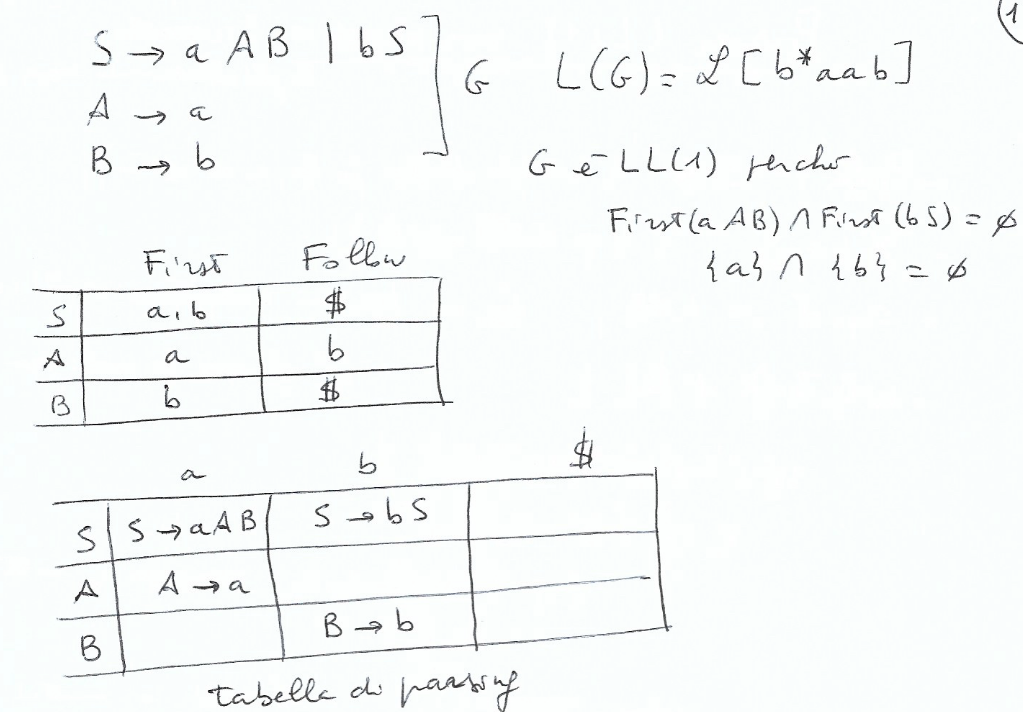 1
S → a A B | b S ] G L(G) = ℒ [ b* a a b ]
A → a
B → b
G è LL(1) perché
First(a AB) ∩ First(b S) = ∅
{a} ∩ {b} = ∅
First Follow
S a, b $
A a b
B b $
a b $
S S → a A B S → b S
A A → a
B B → b
tabella di parsing